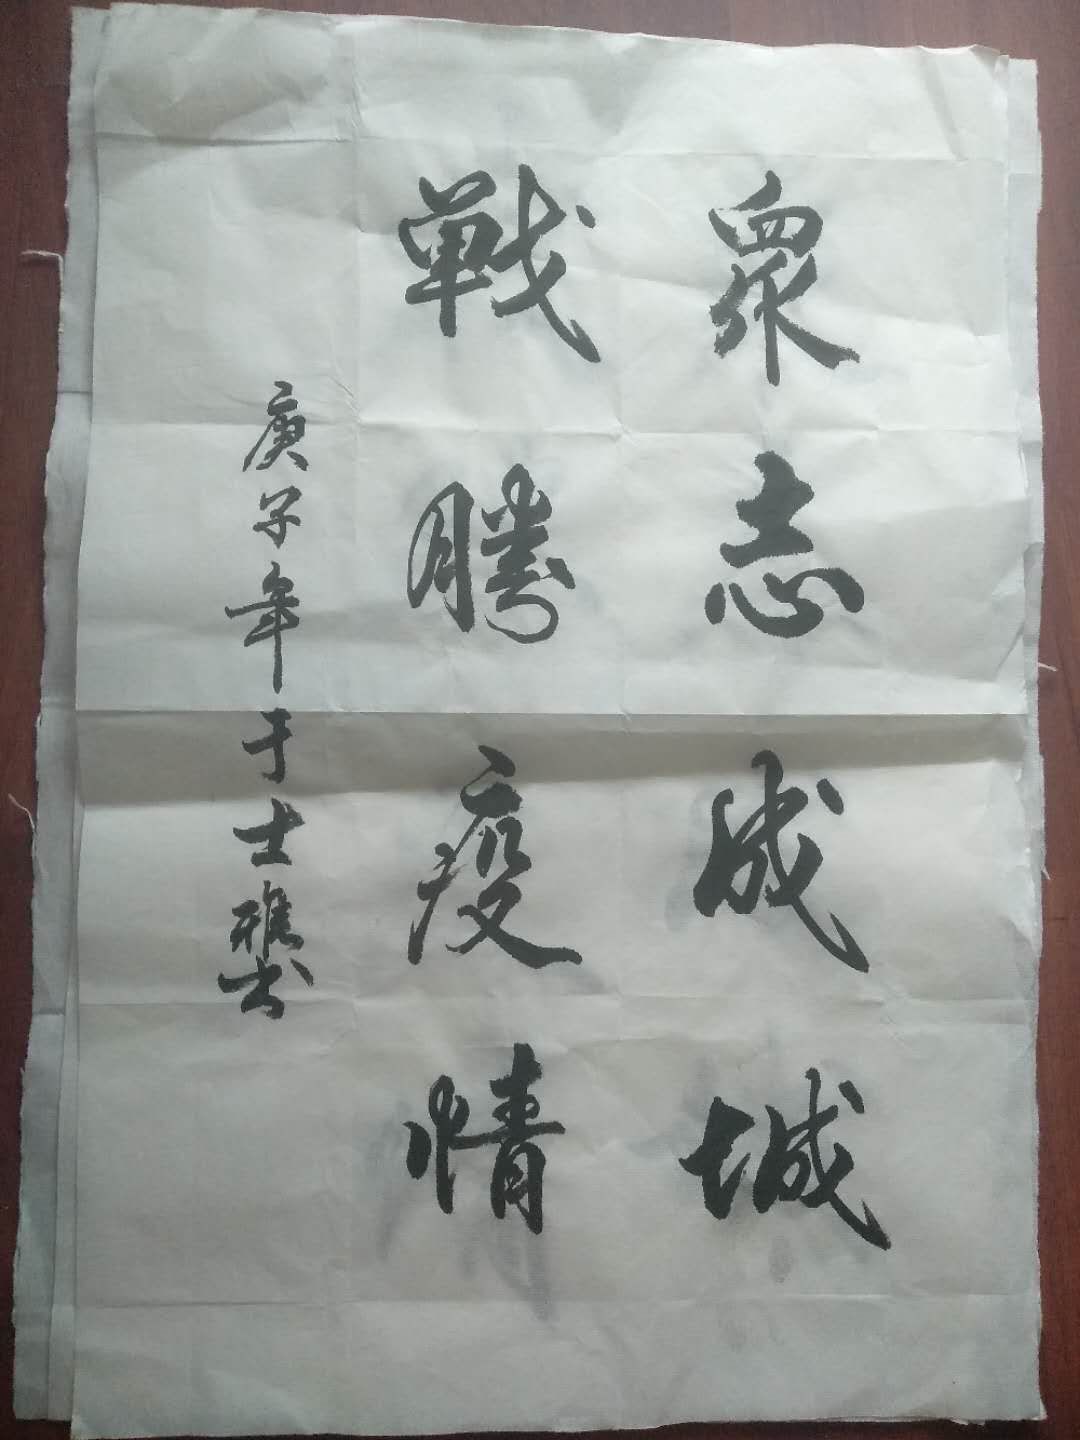 眾志成城
戰勝疫情
庚子年于士雅書